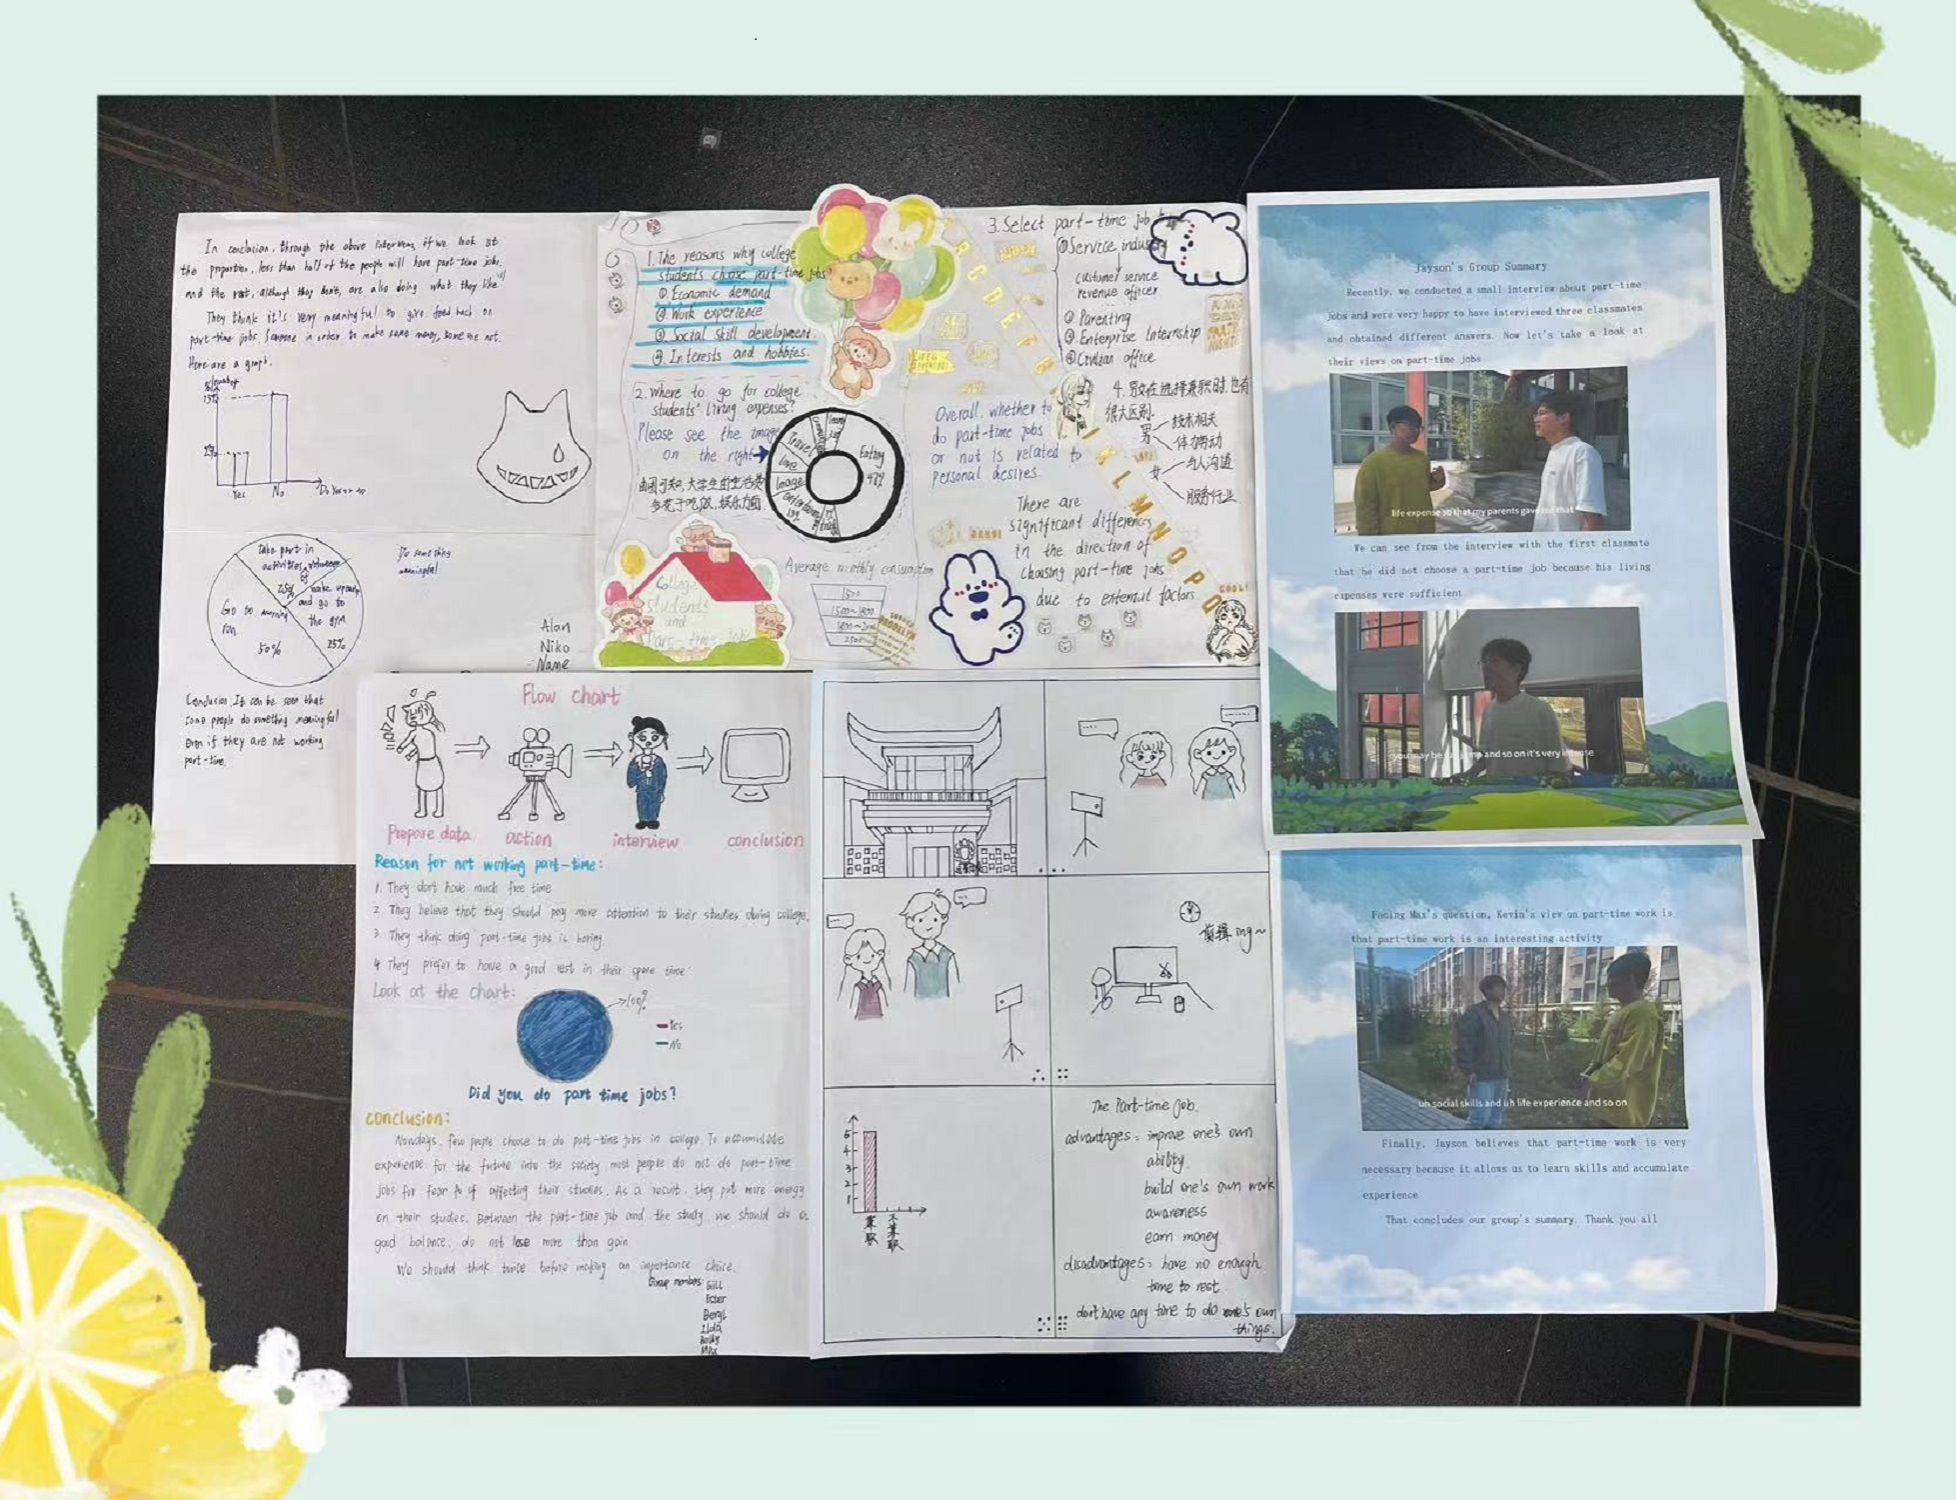 In conclusion, through the above interviews, if we look at
the proportion, less than half of the people will have part-time jobs.
and the rest, although they don't, are also doing what they like
They think it's very meaningful to give feed back on
part-time jobs. Someone in order to make some money, some are not.
Here are a graph.
Yes
No
take part in
activities
25%
wake up early
and go to
the gym
25%
Go to morning
run
50%
Do something
meaningful
Alan
Niko
Name
Conclusion: It can be seen that
some people do something meaningful
even if they are not working
part-time.
1. The reasons why college
students choose part-time jobs
① Economic demand
② Work experience
③ Social skill development.
④ Interests and hobbies.
2. Where to go for college
students' living expenses?
Please see the image
on the right
由图可知,大学生的生活费
多花于吃饭、娱乐方面.
Eating
Travel
love
Image
Average monthly consumption
1500
1500~1800
College
students
and
Part-time jobs
3. Select part-time job
①Service industry
customer service
revenue officer
② Parenting
③ Enterprise Internship
④Civilian office
4. 男女在选择兼职时,也有
很大区别.
男
技术相关
体力劳动
女
与人沟通
服务行业
Overall, whether to
do part-time jobs
or not is related to
personal desires.
There are
significant differences
in the direction of
choosing part-time jobs
due to external factors.
COOL!
Jayson's Group Summary
Recently, we conducted a small interview about part-time
jobs and were very happy to have interviewed three classmates
and obtained different answers. Now let's take a look at
their views on part-time jobs
life expense so that my parents gave me that
We can see from the interview with the first classmate
that he did not choose a part-time job because his living
expenses were sufficient
and so on it's very intense
Facing Max's question, Kevin's view on part-time work is
that part-time work is an interesting activity
uh social skills and uh life experience and so on
Finally, Jayson believes that part-time work is very
necessary because it allows us to learn skills and accumulate
experience
That concludes our group's summary. Thank you all
Flow chart
Prepare data
action
interview
conclusion
Reason for not working part-time:
1. They don't have much free time
2. They believe that they should pay more attention to their studies during college.
3. They think doing part-time jobs is boring.
4. They prefer to have a good rest in their spare time.
Look at the chart:
100%
Yes
No
Did you do part time jobs?
conclusion:
Nowdays, few people choose to do part-time jobs in college. To accumulate
experience for the future into the society most people do not do part-time
jobs for fear of affecting their studies. As a result, they put more energy
on their studies. Between the part-time job and the study, we should do a
good balance, do not lose more than gain.
We should think twice before making an importance choice.
Group members:
Gill
Ester
Beryl
Ilda
Max
剪辑ing~
5
4
3
2
1
兼职
不兼职
The Part-time job.
advantages: improve one's own
ability.
build one's own work
awareness
earn money.
disadvantages: have no enough
time to rest.
don't have any time to do one's own
things.